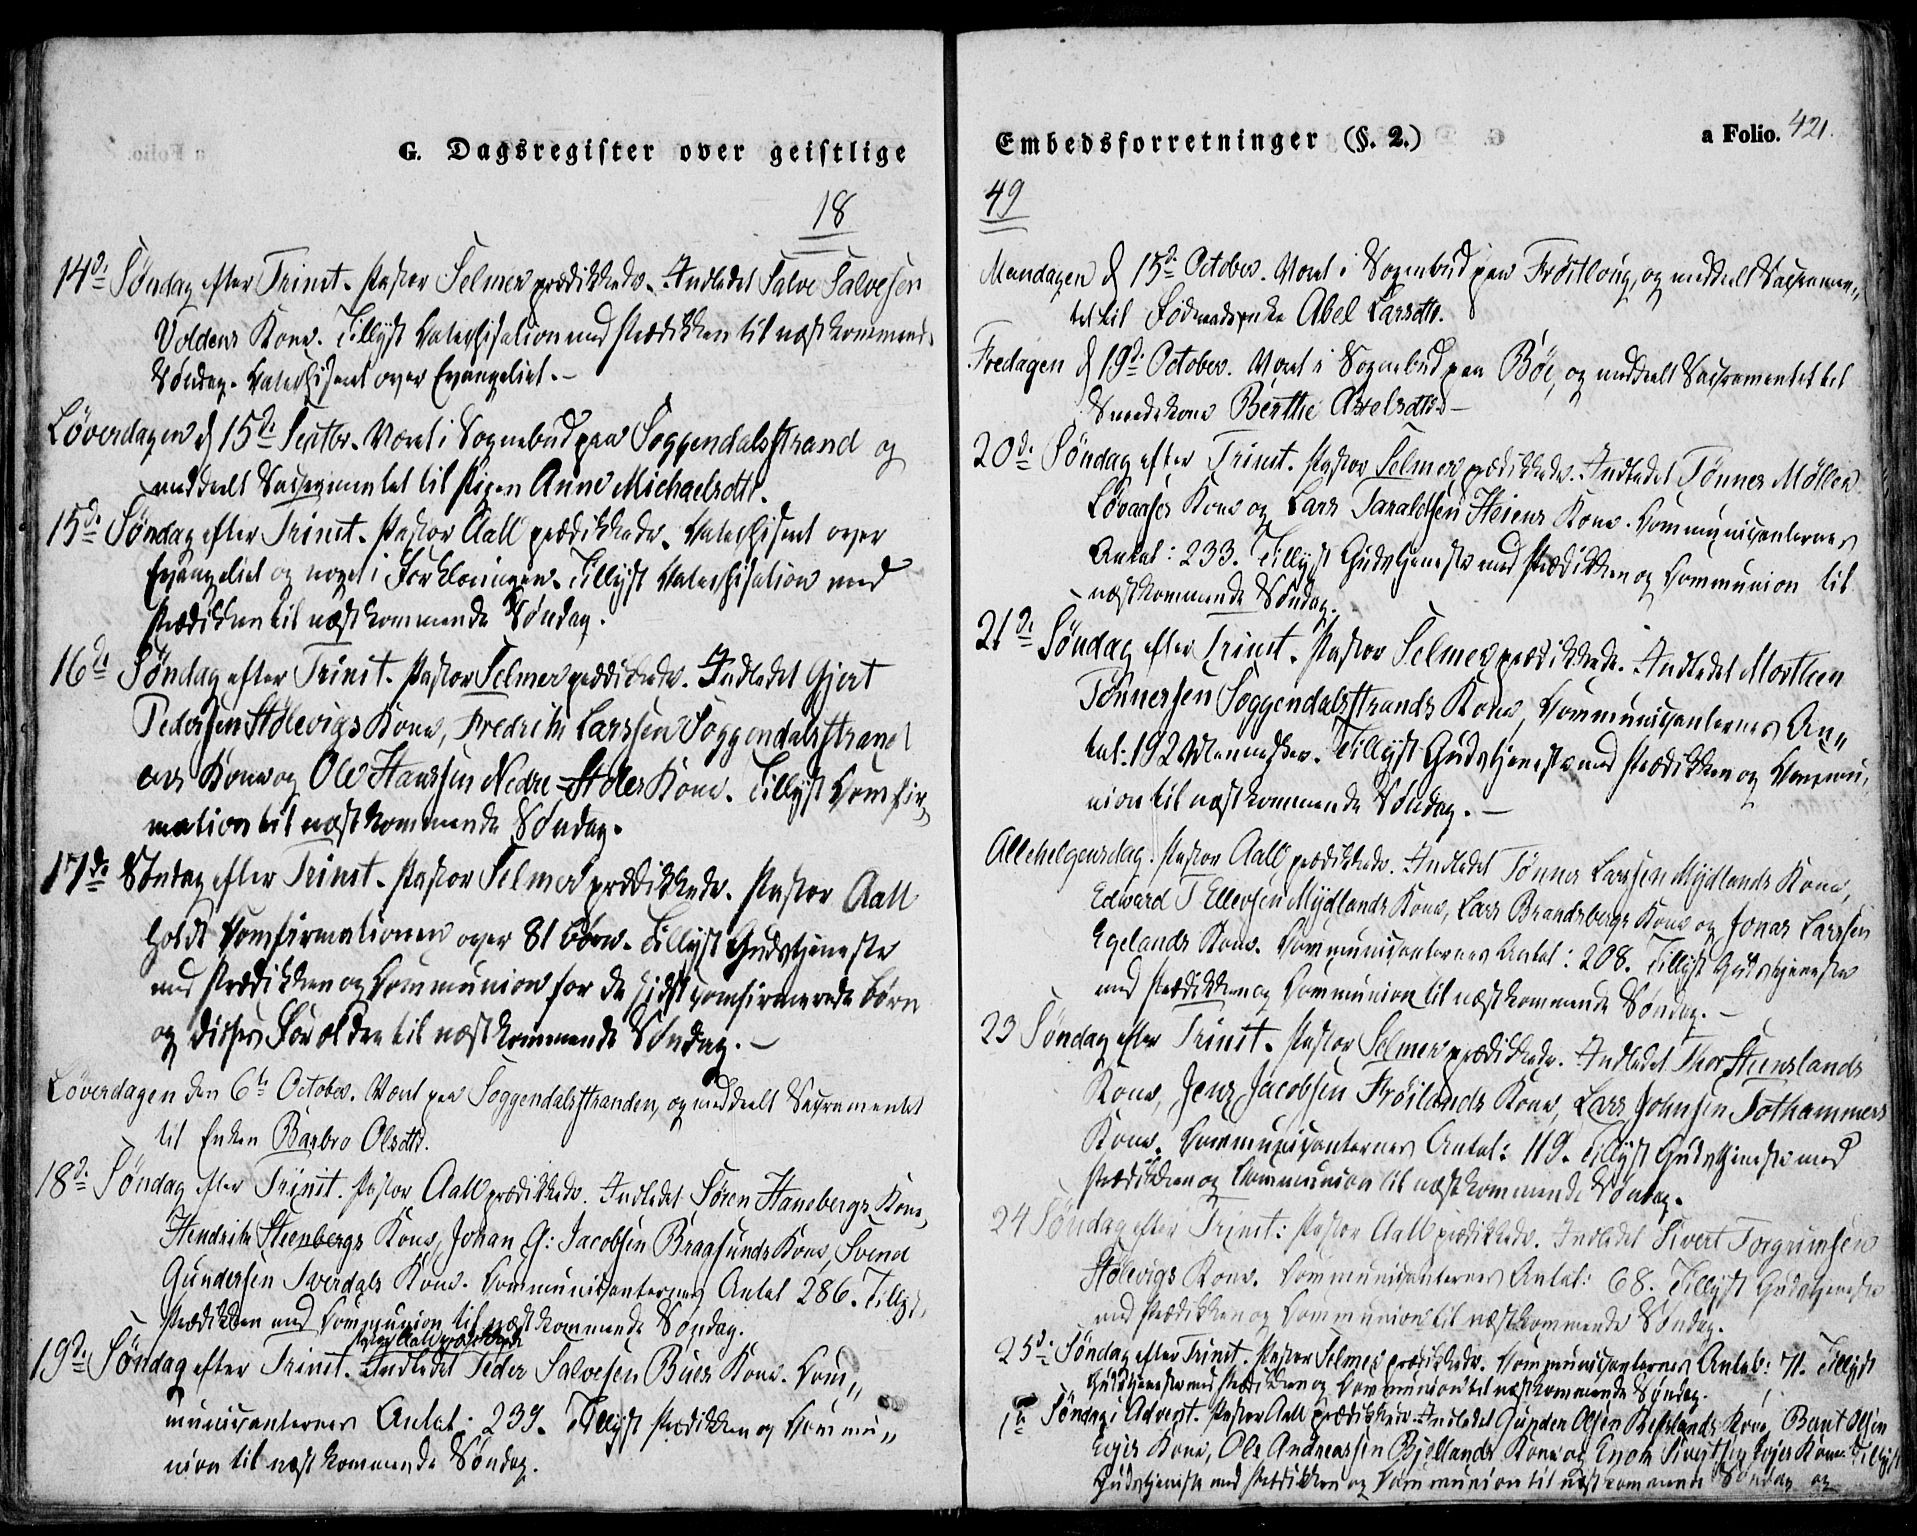 G. Dagsregister over geistlige
18
14de Søndag efter Trinit. Pastor Selmer prædikkede. Indledet Salve Salvesen
Voldens Kone. Tillyst Catechisation med Prædikken til næstkommend.
Søndag. Catechiseret over Evangeliet.-
Løverdagen d 15de Septbr. Været i Sognebud paa Soggendalsstrand og
meddeelt Sacramentet til Pigen Anne Michaelsdttr.
15de Søndag efter Trinit. Pastor Aall prædikkede. Catechiseret over
Evangeliet og noget i Forklaringen. Tillyst Catechisation med
Prædikken til næstkommende Søndag.
16de Søndag efter Trinit. Pastor Selmer prædikkede. Indledet Gjert
Pedersen Stølevigs Kone, Fredrik Larssen Soggendalsstrand
ens Kone og Ole Hanssen Nedre-Støles Kone. Tillyst Comfir„
mation til næstkommende Søndag.
17de Søndag efter Trinit. Pastor Selmer prædikkede. Pastor Aall
holdt Comfirmationen over 81 Børn. Tillyst Gudstjeneste
med Prædikken og Communion for de sidst comfirmerede Børn
og disses Forældre til næstkommende Søndag.-
Løverdagen den 6te October. Været paa Soggendalsstranden, og meddeelt Sacramentet
til Enken Barbro Olsdttr.
18de Søndag efter Trinit. Pastor Aall prædikkede. Indledet Søren Hanebergs Kone,
Hendrik Steenbergs Kone, Johan G: Jacobsen Braasunds Kone, Svend
Gundersen Sverdals Kone. Communicanternes Antal 286. Tillyst
Prædikken med Communion til næstkommende Søndag.
Pastor Aall prædikkede
19de Søndag efter Trinit. Indledet Peder Salvesen Bues Kone. Com„
municanternes Antal: 239. Tillyst Prædikken og Commu„
nion til næstkommende Søndag.
Embedsforretninger (§. 2.)
a Folio. 421.
49
Mandagen d 15de October. Været i Sognebud paa Frøstloug, og meddeelt Sacramen„
tet til Føderaadsenke Abel Larsdttr.
Fredagen d 19de October. Været i Sognebud paa Bøe, og meddeelt Sacramentet til
Smedekone Berthe Axelsdttr.-
20de Søndag efter Trinit. Pastor Selmer prædikkede. Indledet Tønnes Møller
Løvaases Kone og Lars Taraldsen Høiens Kone. Communicanternes
Antal: 233. Tillyst Gudstjeneste med Prædikken og Communion til
næstkommende Søndag.
21de Søndag efter Trinit. Pastor Selmer prædikkede. Indledet Morthen
Tønnessen Soggendalsstrands Kone, Communicanternes An„
tal: 192 Mennesker. Tillyst Gudstjeneste med Prædikken og Commu„
nion til næstkommende Søndag.-
Allehelgensdag. Pastor Aall prædikkede. Indledet Tønnes Larssen Mydlands Kone,
Edward T Ellevsen Mydlands Kone, Lars Brandsbergs Kone og Jonas Larssen
Egelands Kone. Communicanternes Antal: 208. Tillyst Gudstjeneste
med Prædikken og Communion til næstkommende Søndag.-
23 Søndag efter Trinit. Pastor Selmer prædikkede. Indledet Thor Steenslands
Kone, Jens Jacobsen Frøilands Kone, Lars Johnsen Tothammers
Kone. Communicanternes Antal: 119. Tillyst Gudstjeneste med
Prædikken og Communion til næstkommende Søndag.
24 Søndag efter Trinit: Pastor Aall prædikkede. Indledet Sivert Torgrimsen
Stølevigs Kone. Communicanternes Antal: 68. Tillyst Gudstjeneste
med Prædikken og Communion til næstkommende Søndag.
25de Søndag efter Trinit. Pastor Selmer prædikkede. Communicanternes Antal: 71. Tillyst
Gudstjeneste med Prædikken og Communion til næstkommende Søndag.
1te Søndag i Advent. Pastor Aall prædikkede. Indledet Gunder Olsen Kone, Bernt Olsen
Eigis Kone, Ole Andreassen Bjellands Kone og Enok Sivertsen Kone. Tillyst
Gudstjeneste med Prædikken og Communion til næstkommende Søndag og